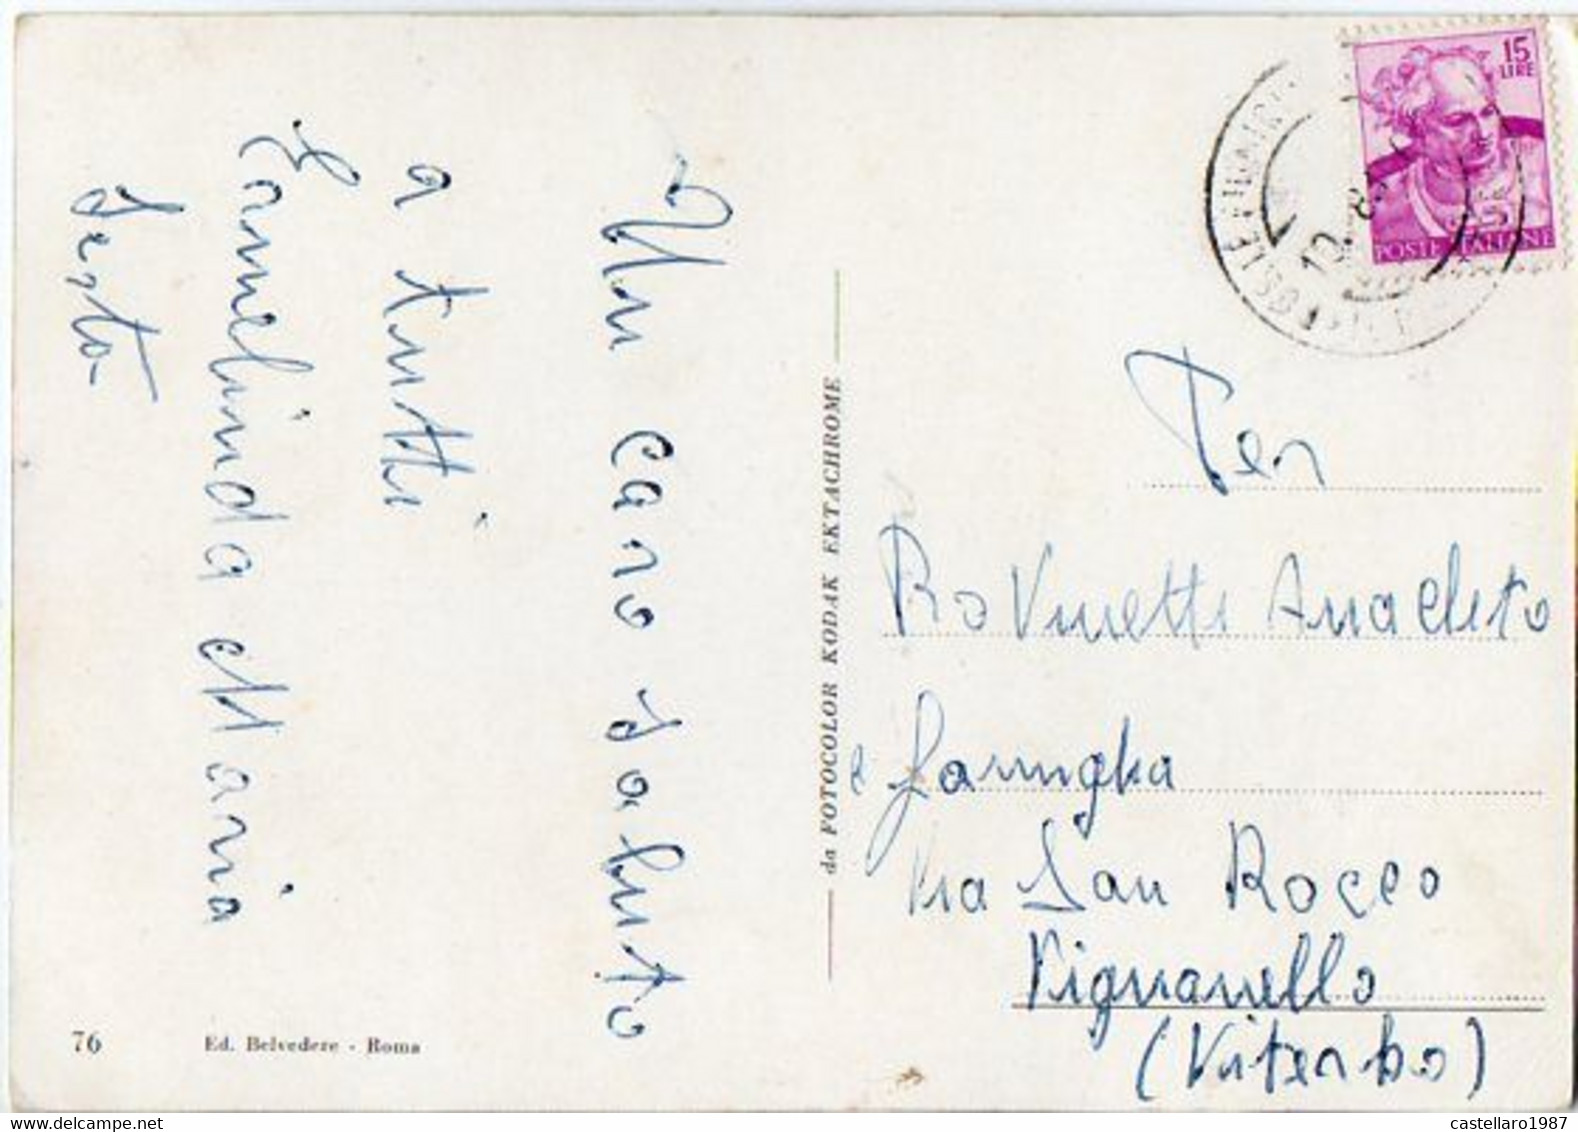 Un caro saluto
a tutti
Carmelinda e Maria
Sesto
da FOTOCOLOR KODAK EKTACHROME
76
Ed. Belvedere - Roma
15
LIRE
POSTE ITALIANE
POSTE
Per
Ro Vinetti Anacleto
e famiglia
Via San Rocco
Vignanello
(Viterbo)
castellaro1987